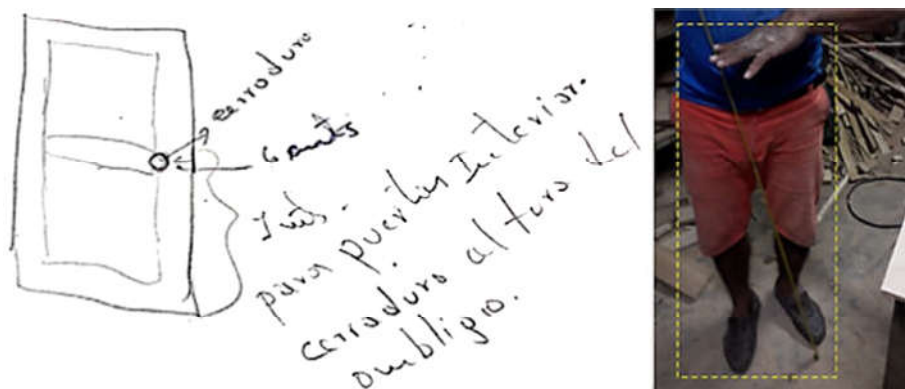 cerroduro
6 mts
1 mts.
para puertas Interior.
cerroduro alturo del
ombligo.